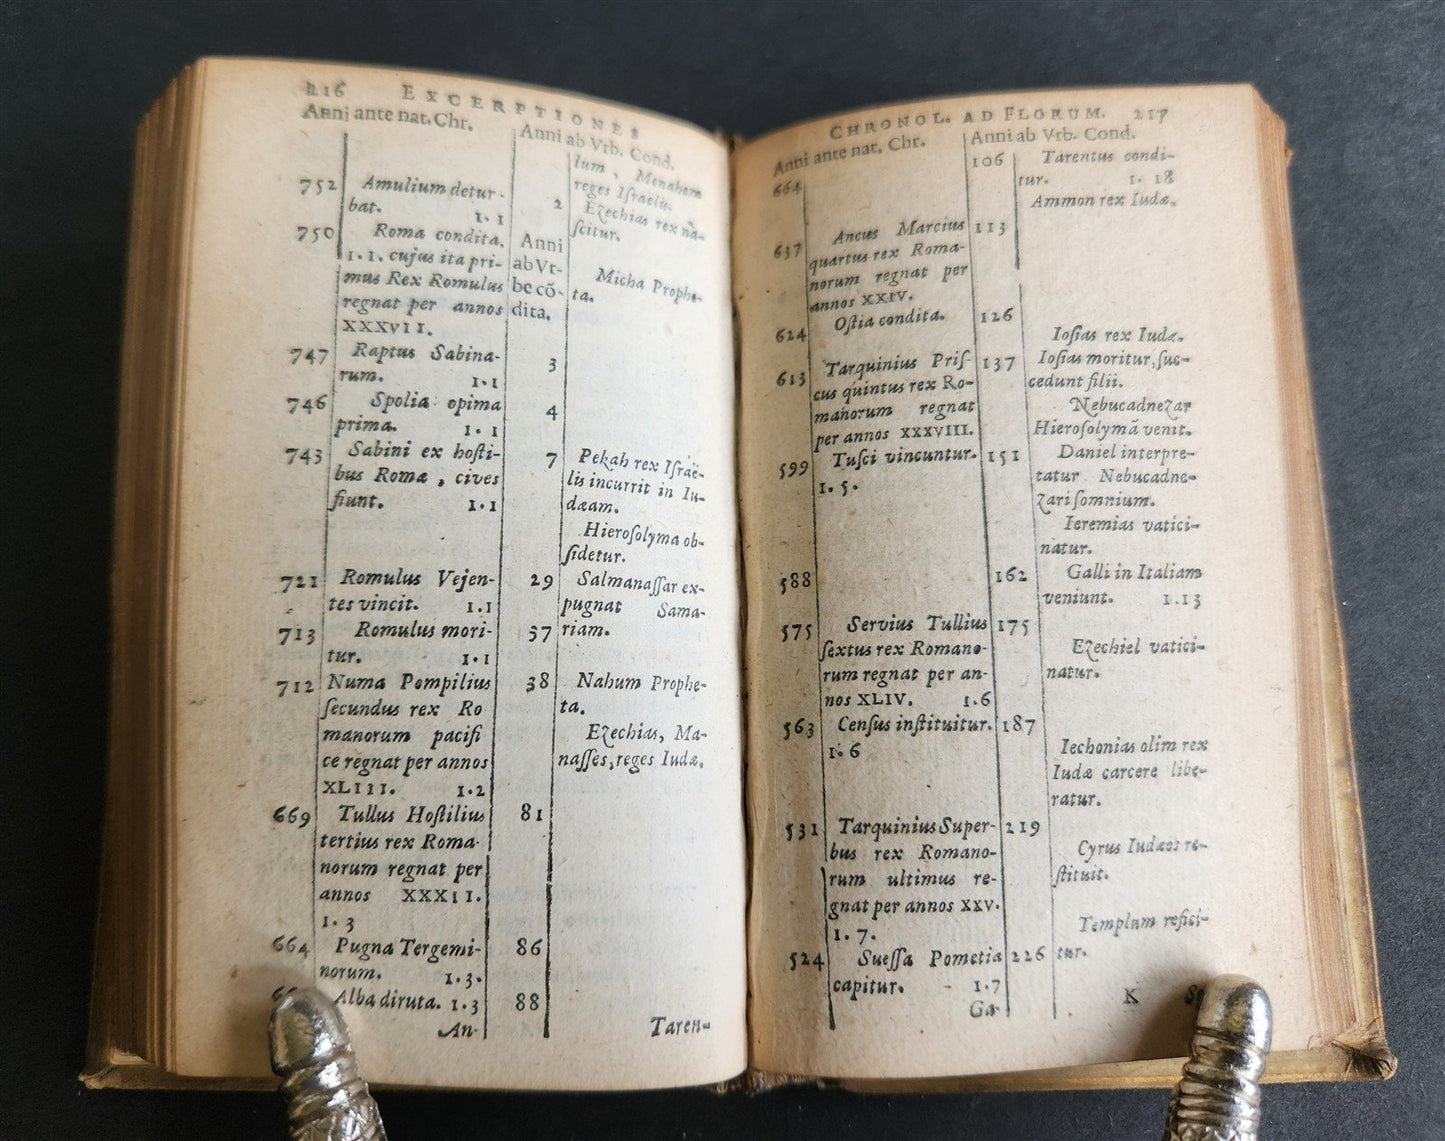 216 EXCERPTIONES
Anni ante nat. Chr. Anni ab Vrb. Cond.
lum, Menahem
reges Iſraelis.
752 Amulium detur-
bat. 1. 1
2 Ezechias rex na-
ſcitur.
750 Roma condita.
1. 1. cujus ita pri-
mus Rex Romulus
regnat per annos
XXXVII.
Anni
ab Vr-
be cõ-
dita.
Micha Prophe-
ta.
747 Raptus Sabina- 3
rum. 1. 1
746 Spolia opima 4
prima. 1. 1
743 Sabini ex hoſti- 7
bus Romæ, cives
fiunt. 1. 1
Pekah rex Iſraë-
lis incurrit in Iu-
dæam.
Hieroſolyma ob-
ſidetur.
721 Romulus Vejen- 29
tes vincit. 1. 1
Salmanaſſar ex-
pugnat Sama-
riam.
713 Romulus mori- 37
tur. 1. 1
712 Numa Pompilius 38
ſecundus rex Ro
manorum pacifi
ce regnat per annos
XLIII. 1. 2
Nahum Prophe-
ta.
Ezechias, Ma-
naſſes, reges Iudæ.
669 Tullus Hoſtilius 81
tertius rex Roma-
norum regnat per
annos XXXII.
1. 3
664 Pugna Tergemi- 86
norum. 1. 3.
Alba diruta. 1. 3 88
An- Taren-
CHRONOL. AD FLORUM. 217
Anni ante nat. Chr. Anni ab Vrb. Cond.
664 106 Tarentus condi-
tur. 1. 18
Ammon rex Iudæ.
637 Ancus Marcius 113
quartus rex Roma-
norum regnat per
annos XXIV.
624 Oſtia condita. 126
Ioſias rex Iudæ.
613 Tarquinius Priſ- 137
cus quintus rex Ro-
manorum regnat
per annos XXXVIII.
Ioſias moritur, ſuc-
cedunt filii.
Nebucadnezar
Hieroſolymã venit.
599 Tuſci vincuntur. 151
1. 5.
Daniel interpre-
tatur Nebucadne-
zari ſomnium.
Ieremias vatici-
natur.
588 162 Galli in Italiam
veniunt. 1. 13
575 Servius Tullius 175
ſextus rex Romano-
rum regnat per an-
nos XLIV. 1. 6
Ezechiel vatici-
natur.
563 Cenſus inſtituitur. 187
1. 6
Iechonias olim rex
Iudæ carcere libe-
ratur.
531 Tarquinius Super- 219
bus rex Romano-
rum ultimus re-
gnat per annos XXV.
1. 7.
Cyrus Iudæos re-
ſtituit.
Templum refici-
tur.
524 Sueſſa Pometia 226
capitur. 1. 7
Ga- K